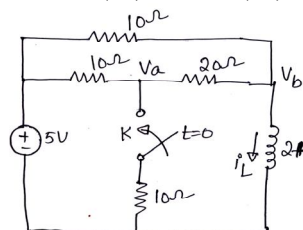 10Ω
10Ω Va 20Ω Vb
+
-
5V K t=0
iL 2
10Ω